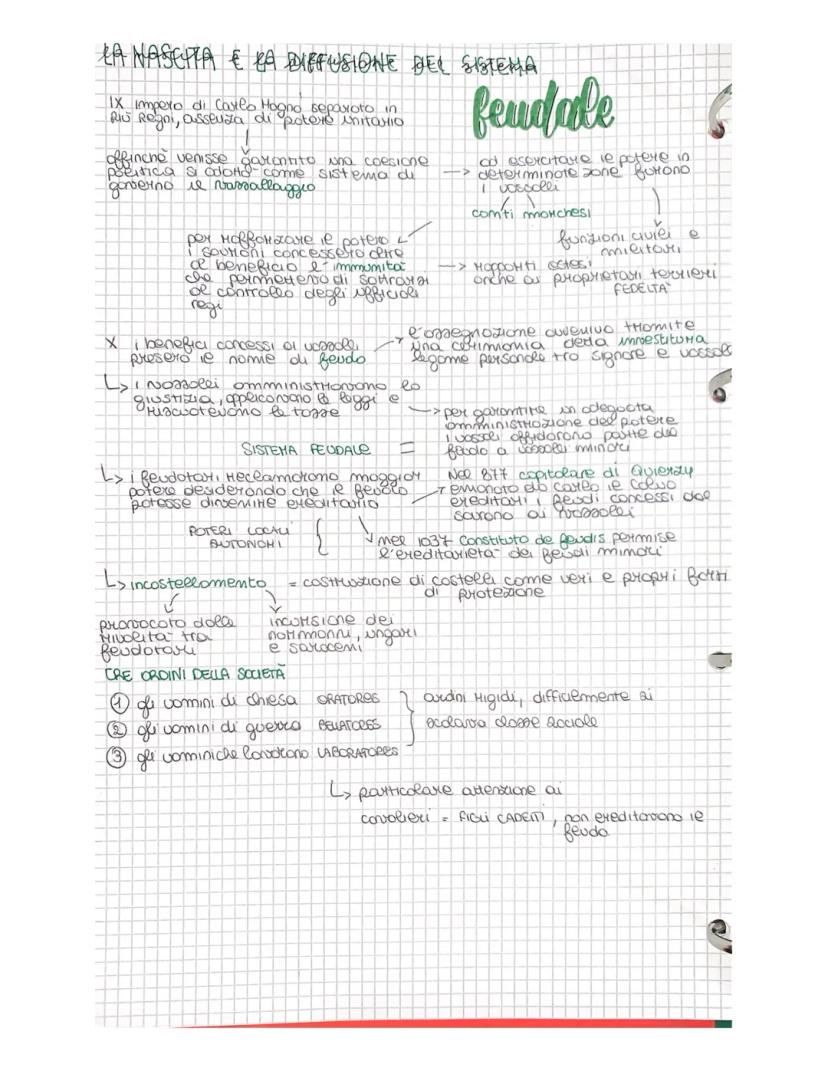 LA NASCITA E LA DIFFUSIONE DEL SISTEMA
feudale
IX impero di Carlo Magno separato in
più Regni, assenza di potere unitario
affinché venisse garantito una coesione
politica si adottò come sistema di
governo il vassallaggio
ad esercitare il potere in
determinate zone furono
i vassalli
conti marchesi
funzioni civili e
militari
per rafforzare il potere
i sovrani concessero oltre
al beneficio l'immunità
che permetteva di sottrarsi
al controllo degli ufficiali
regi
rapporti estesi
anche ai proprietari terrieri
FEDELTA'
X i benefici concessi ai vassalli
presero il nome di feudo
l'assegnazione avveniva tramite
una cerimonia detta investitura
legame personale tra signore e vassallo
i vassalli amministravano la
giustizia, applicavano le leggi e
riscuotevano le tasse
per garantire un adeguata
amministrazione del potere
i vassalli affidarono parte del
feudo a vassalli minori
SISTEMA FEUDALE =
i feudatari reclamarono maggior
potere desiderando che il feudo
potesse divenire ereditario
Nel 877 capitolare di Quierzy
emanato da Carlo il Calvo
ereditari i feudi concessi dal
sovrano ai vassalli
POTERI LOCALI
AUTONOMI
nel 1037 Constituto de feudis permise
l'ereditarietà dei feudi minori
incastellamento = costruzione di castelli come veri e propri forti
di protezione
provocato dalla
rivalità tra
feudatari
incursione dei
normanni, ungari
e saraceni
TRE ORDINI DELLA SOCIETÀ
① gli uomini di chiesa ORATORES
② gli uomini di guerra BELLATORES
③ gli uomini che lavorano LABORATORES
ordini rigidi, difficilmente si
scalava classe sociale
particolare attenzione ai
cavalieri = FIGLI CADETTI, non ereditavano il
feudo